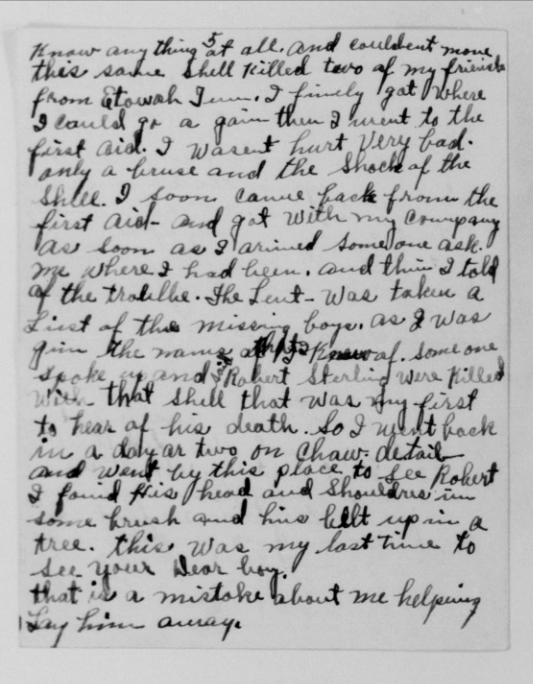 5
Know any thing at all. and couldent move
this same Shell Killed two of my friends
from Etowah Tenn. I finely got where
I could go a gain then I went to the
first aid. I wasent hurt Very bad.
only a bruse and the Shock of the
Shell. I soon came back from the
first aid- and got with my company
as soon as I arived Someone ask.
me where I had been. and then I told
of the trouble. The Leut- was taken a
List of the missing boys. as I was
givin the names that I Know of. Some one
spoke up and said Robert Sterling were Killed
with that Shell that was my first
to hear of his death. So I went back
in a day or two on Chaw- detail
and went by this place to See Robert
I found his head and Shouldres in
some brush and his belt up in a
tree. this was my last time to
see your Dear boy.
that is a mistake about me helping
Lay him away.